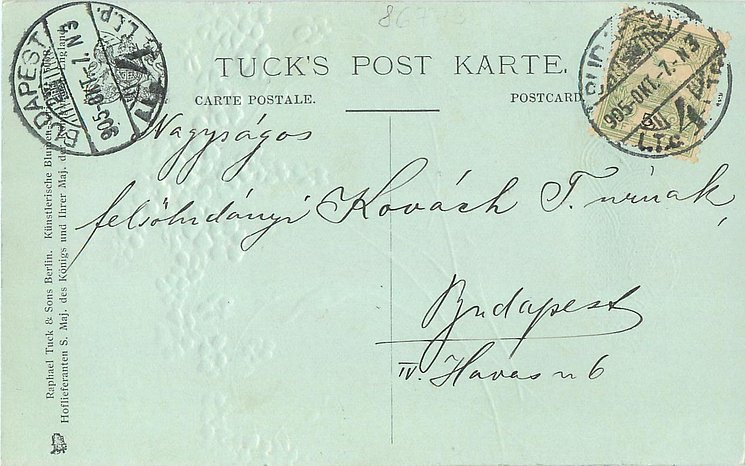 TUCK'S POST KARTE.
CARTE POSTALE.
POSTCARD
Nagyságos
Kovách T. úrnak,
Budapest
IV. Havas u 6
Raphael Tuck & Sons Berlin. Künstlerische Blumen
Hoflieferanten S. Maj. des Königs und Ihrer Maj. der
England
BUDAPEST
905 OKT. 7. N5
4
905 OKT. 7.
4